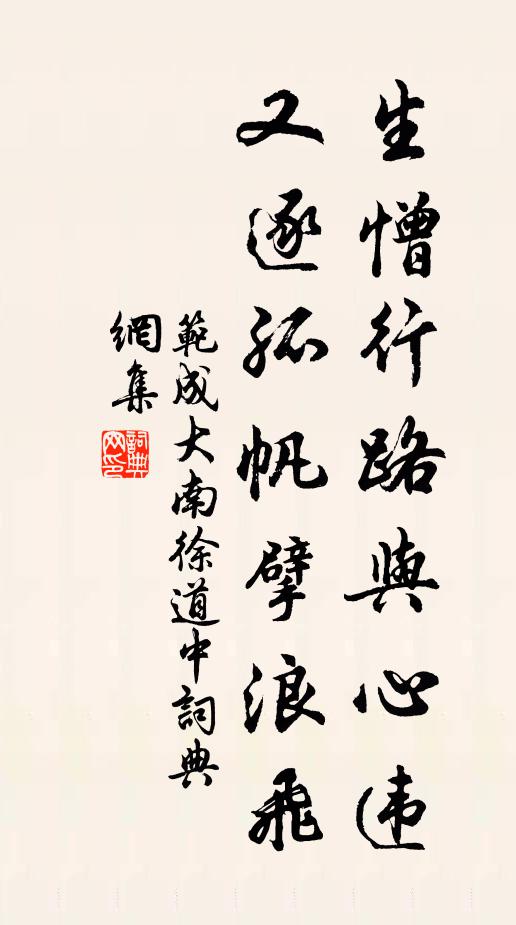 生憎行路與心违
又逐孤帆擘浪飛
範成大南徐道中詞典
網集
詞典
网印